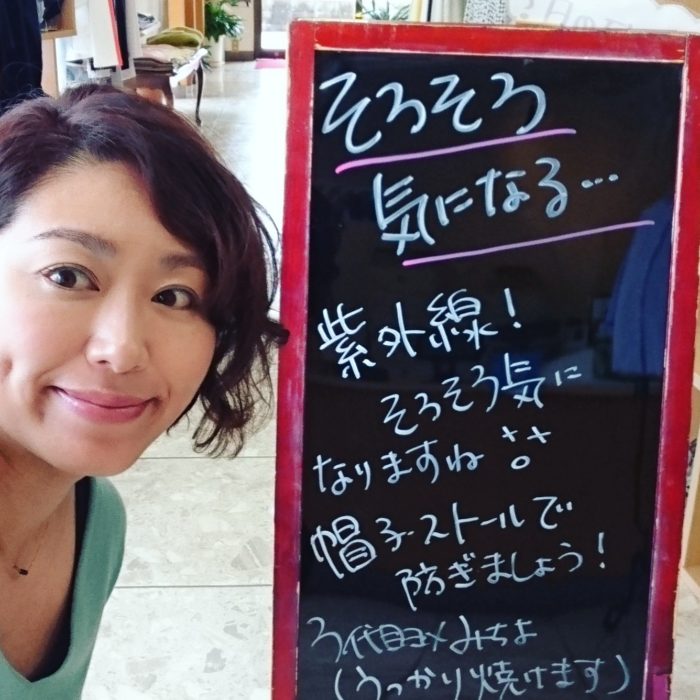 そろそろ
気になる…
紫外線!
そろそろ気に
なりますね
帽子・ストールで
防ぎましょう!
3代目ヨメみちよ
(うっかり焼けます)